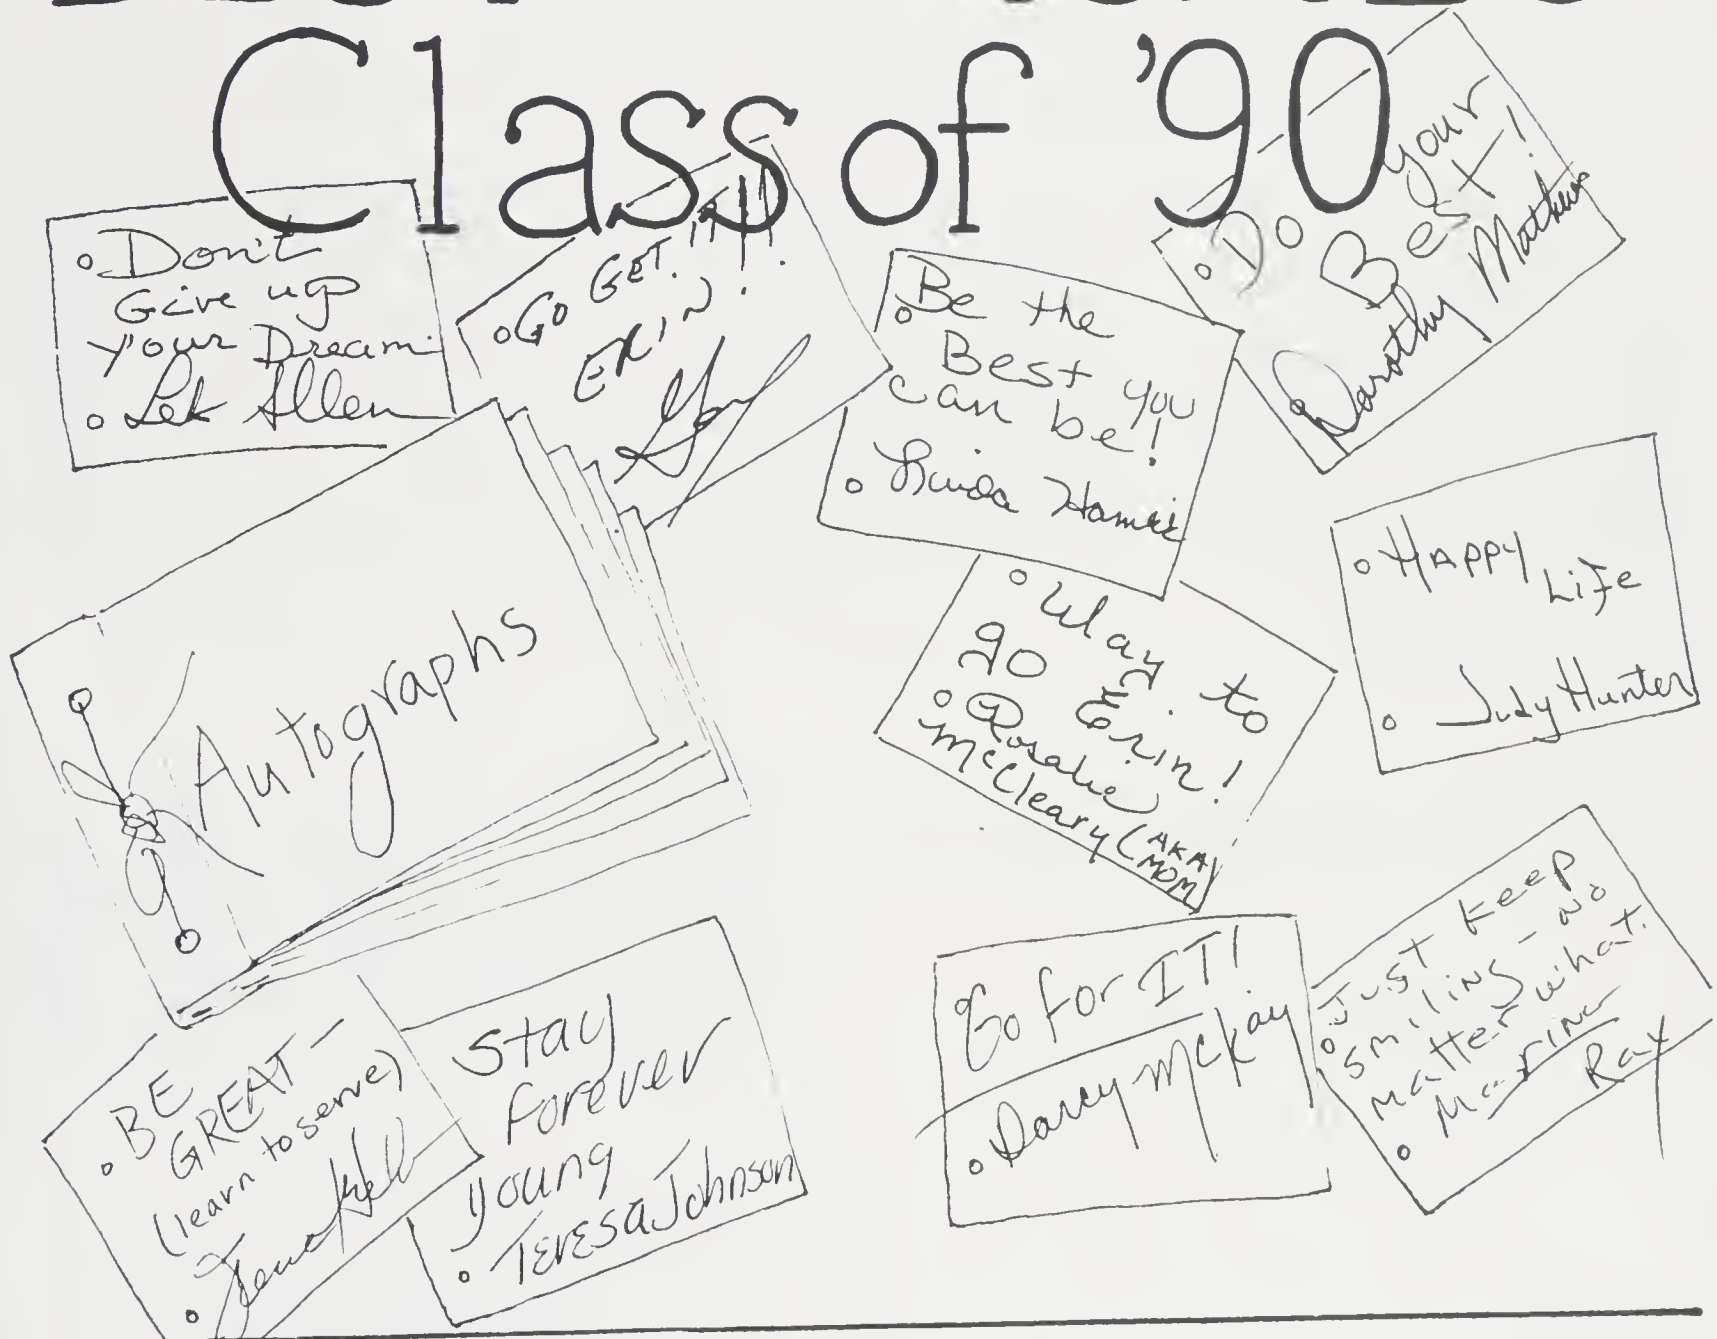 Class of '90
Don't
Give up
your Dream
Allen
Go GET IT!!!
ERIN!
Be the
Best you
can be!
Linda
Do your
Best!
Dorothy Mathews
Happy
Life
Judy Hunter
Way to
go Erin!
Rosalie
McCleary (AKA
MOM
Autographs
BE
GREAT—
(learn to serve)
Stay
forever
young
Teresa Johnson
Go for IT!
Darcy McKay
Just keep
smiling - no
matter what.
Marina
Ray